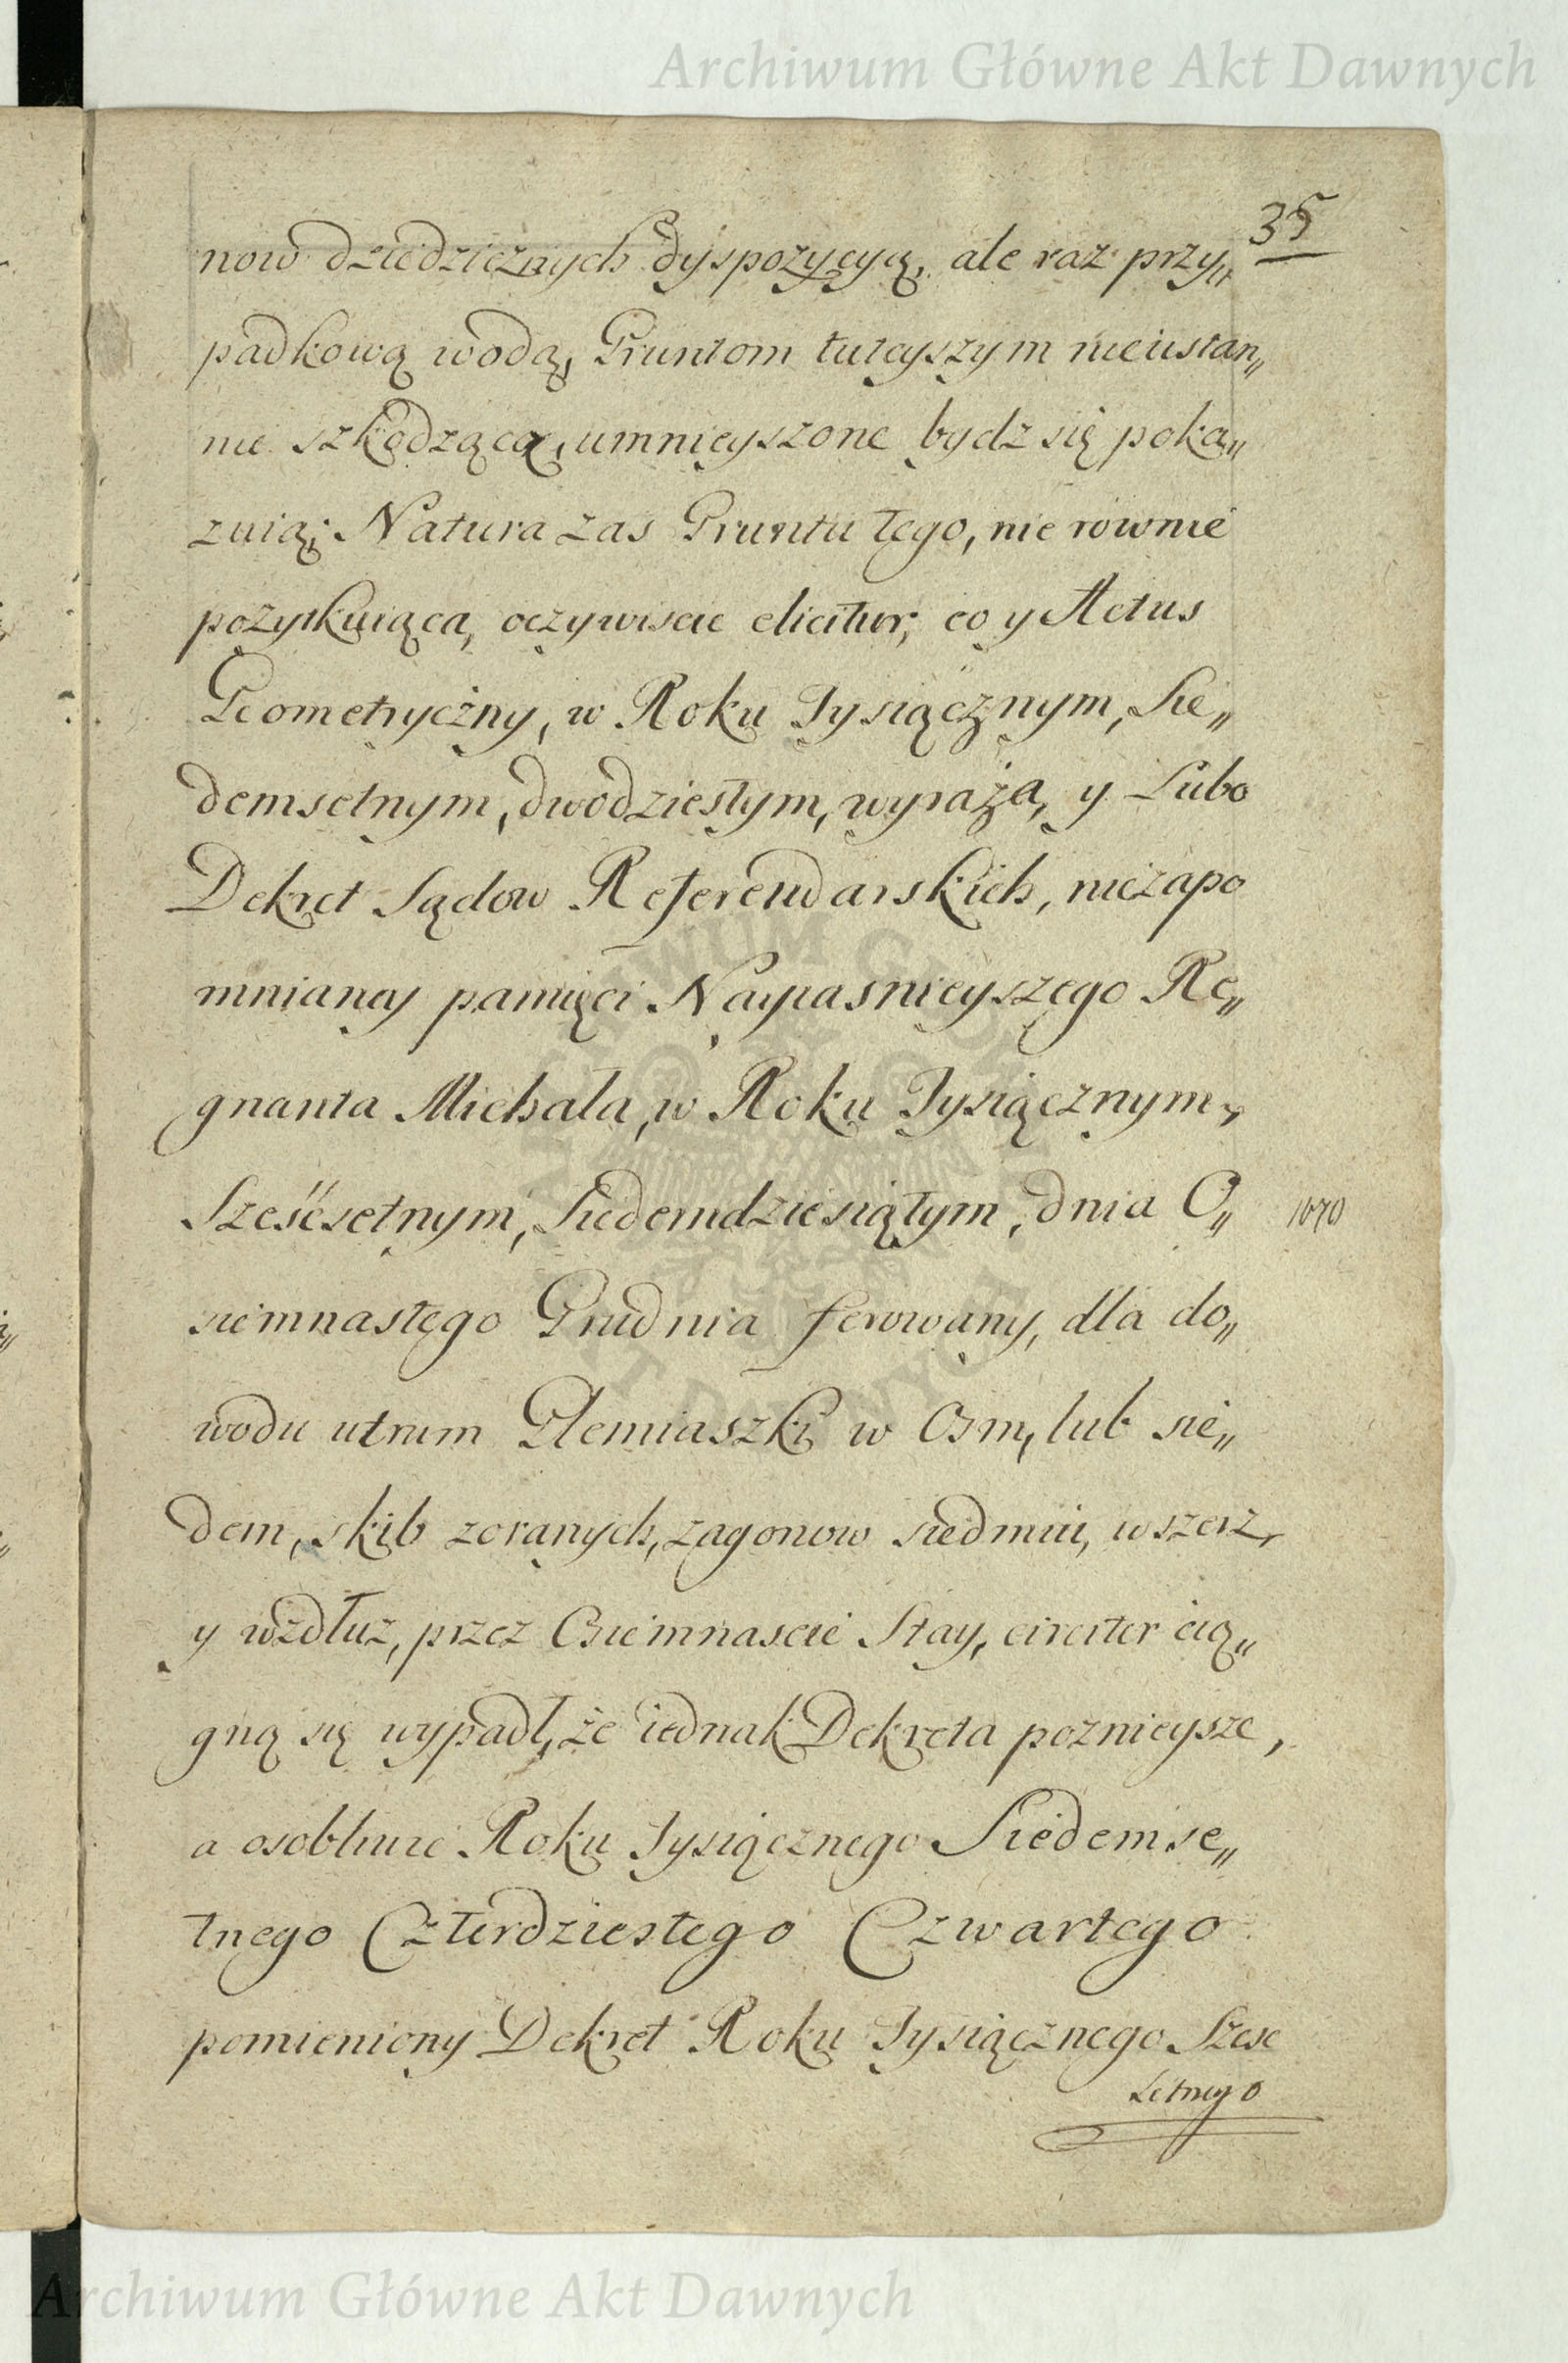 Archiwum Główne Akt Dawnych
35
now dziedzicznych dyspozycyą, ale raz przy„
padkową wodą, Gruntom tuteyszym nieustan„
nie szkodzącą, umnieyszone bydz się poka„
zuią; Natura zas Gruntu tego, nie rownie
pożytkuiąca, oczywiscie elicitur; co y Actus
Geometryczny, w Roku Tysiącznym, Sie„
demsetnym, dwodziestym, wyraża, y Lubo
Dekret Sądow Referendarskich, niezapo
mnianey pamięci Nayiasnieyszego Re„
gnanta Michała, w Roku Tysiącznym,
Sześćsetnym, Siedemdziesiątym, dnia O„
1670
siemnastego Grudnia ferowany, dla do„
wodu utrum Plemiaszki w Osm, lub sie„
dem, skib zoranych, zagonow siedmiu, wszerz,
y wzdłuz, przez Osiemnascie Stay, circiter cią„
gną się wypadł, że iednak Dekreta poznieysze,
a osobliwie Roku Tysiącznego Siedemse„
tnego Czterdziestego Czwartego
pomieniony Dekret Roku Tysiącznego Szesc
Setnego
Archiwum Główne Akt Dawnych